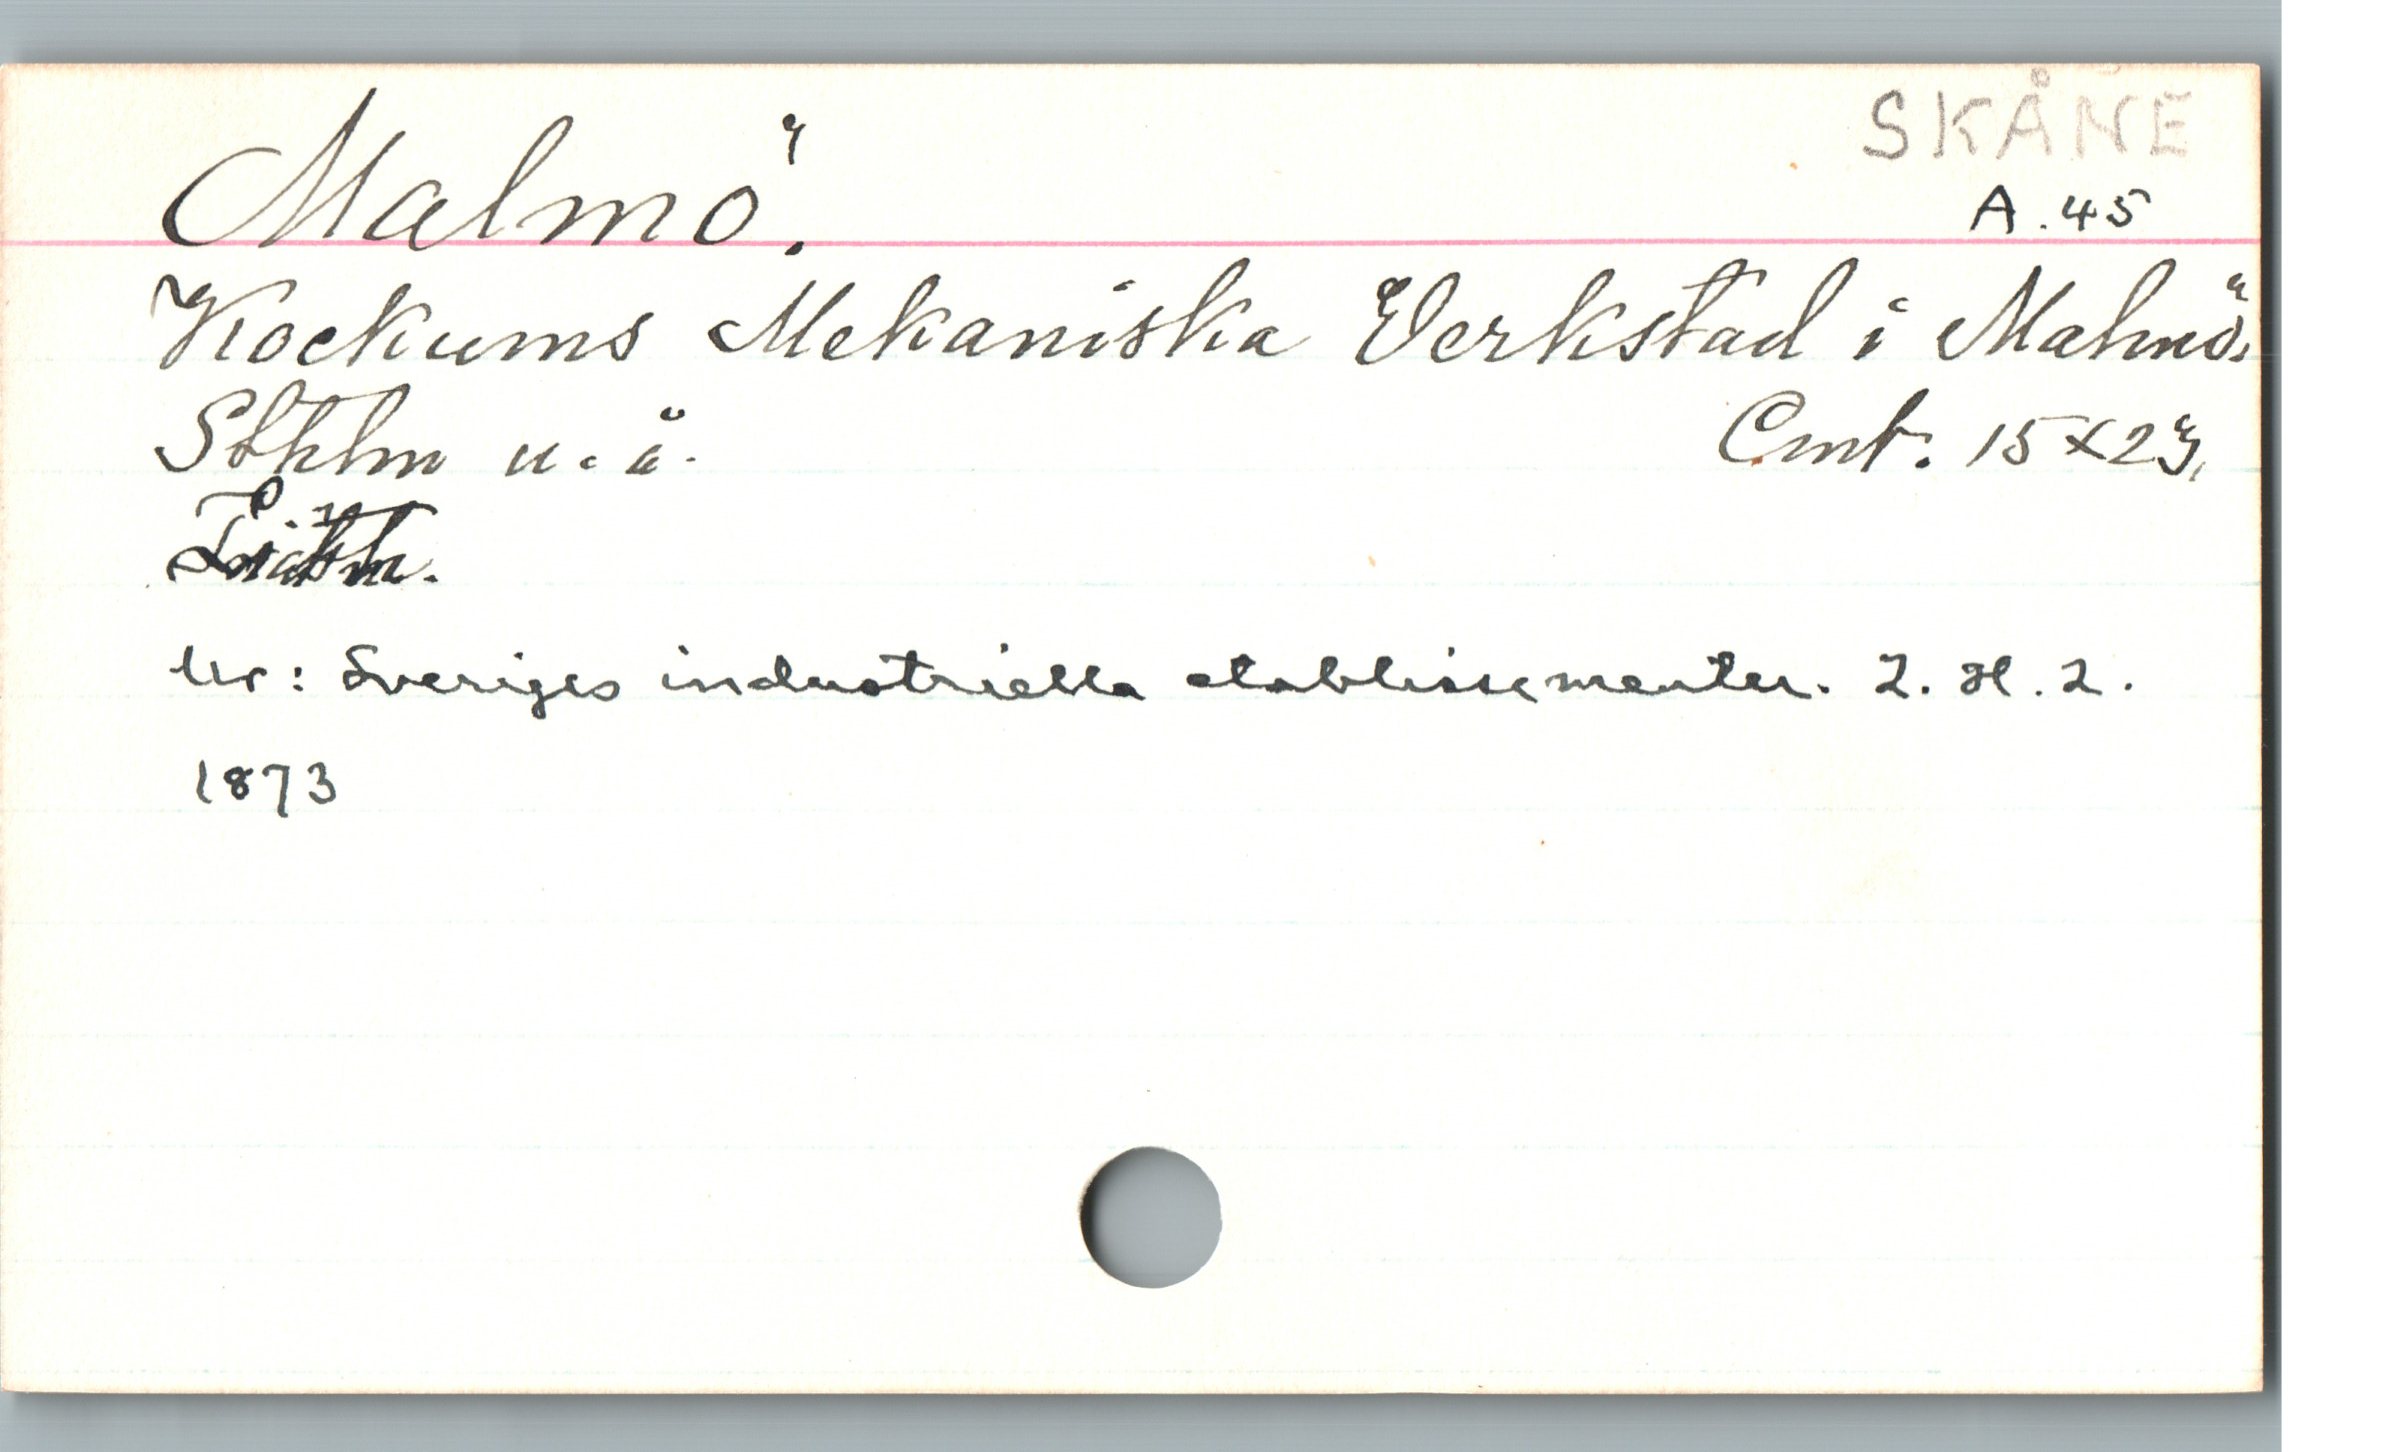 SKÅNE
Malmö.
A.45
Kockums Mekaniska Verkstad i Malmö.
Sthlm u. å.
Cmt. 15×23.
Ur: Sveriges industriella etablissementer. 2. H. 2.
1873